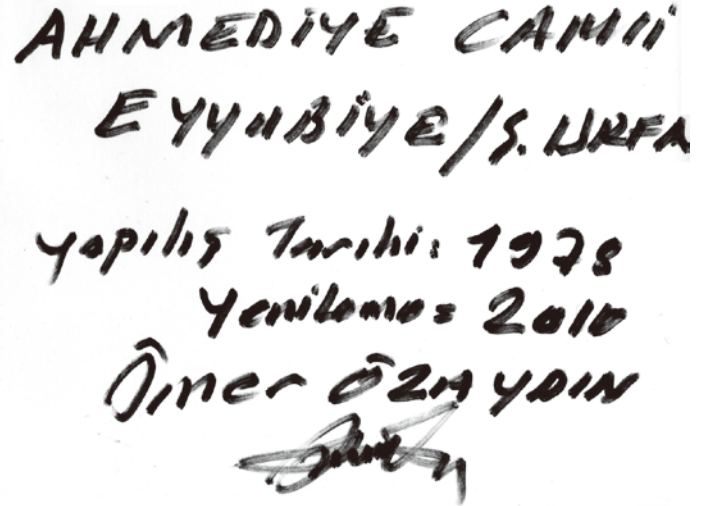 AHMEDİYE CAMİİ
EYYUBİYE/Ş.URFA
Yapılış Tarihi: 1978
Yenileme: 2010
Ömer ÖZAYDIN